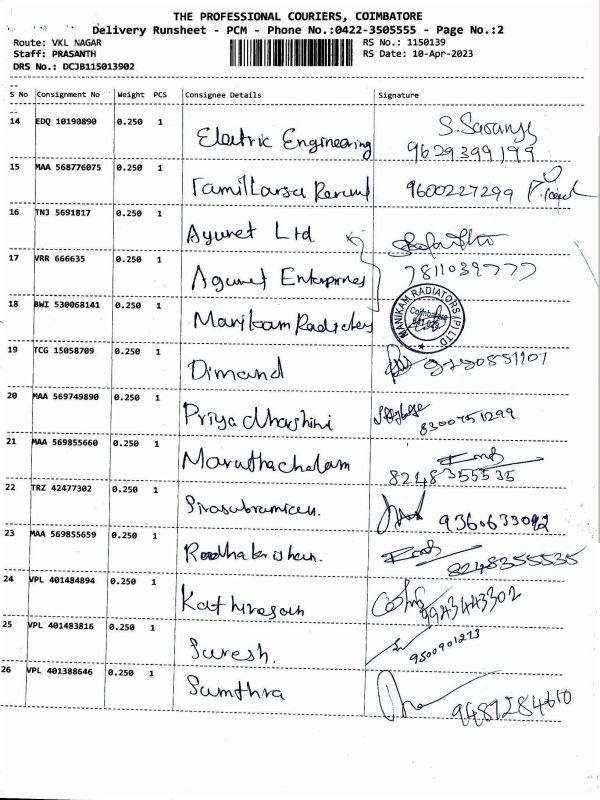 THE PROFESSIONAL COURIERS, COIMBATORE
Delivery Runsheet - PCM - Phone No.:0422-3505555 - Page No.:2
Route: VKL NAGAR RS No.: 1150139
Staff: PRASANTH RS Date: 10-Apr-2023
DRS No.: DCJB115013902
S No Consignment No Weight PCS Consignee Details Signature
14 EDQ 10190890 0.250 1 Electric Engineering S. Saranya 9629399199
15 MAA 568776075 0.250 1 9600227299
16 TNJ 5691817 0.250 1 Ayunet Ltd
17 VRR 666635 0.250 1 Agunet Enterprises 7811039777
18 BWI 530068141 0.250 1 Manikam Radiators MANIKAM RADIATORS (P) LTD
19 TCG 15058709 0.250 1 Dimand
20 MAA 569749890 0.250 1 Priyadharshini 8300751299
21 MAA 569855660 0.250 1 Maruthachalam 8248355535
22 TRZ 42477302 0.250 1 Sivasubramian.
23 MAA 569855659 0.250 1 Radhakrishan. 8248355535
24 VPL 401484894 0.250 1 Kathiresan 9943443302
25 VPL 401483816 0.250 1 Suresh. 9500901273
26 VPL 401388646 0.250 1 Sumthra 9487284610